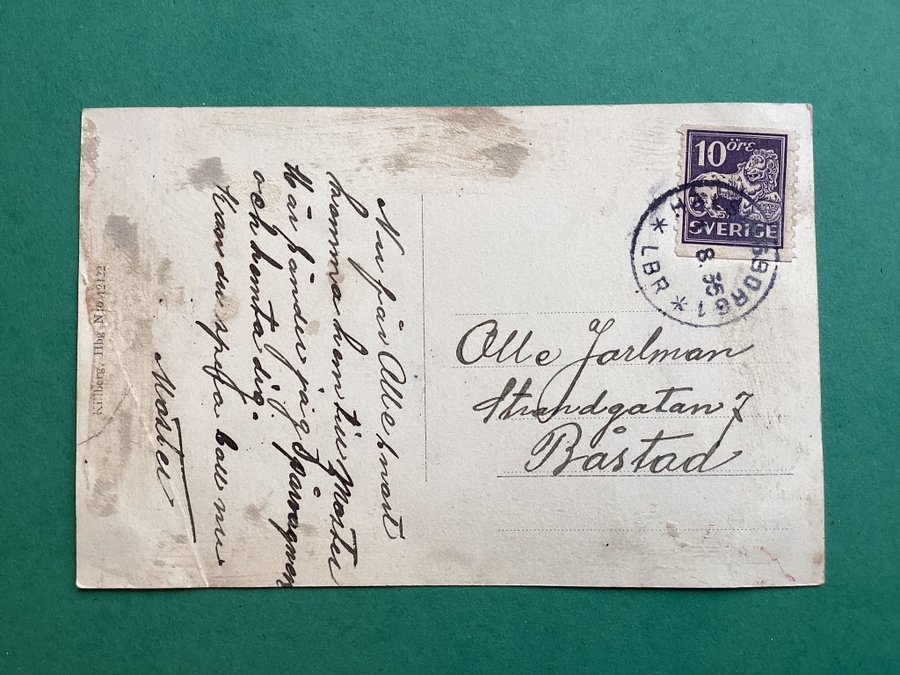 Nu får Olle snart
komma hem till Moster
Här sänder jag Spårvagnen
och hemta dig.
Kan du spela boll nu
Moster
Killberg, Hbg N:o 12122
10 öre
SVERIGE
HÄLSINGBORG 1
8. 35
* LBR *
Olle Jarlman
Strandgatan 7
Båstad